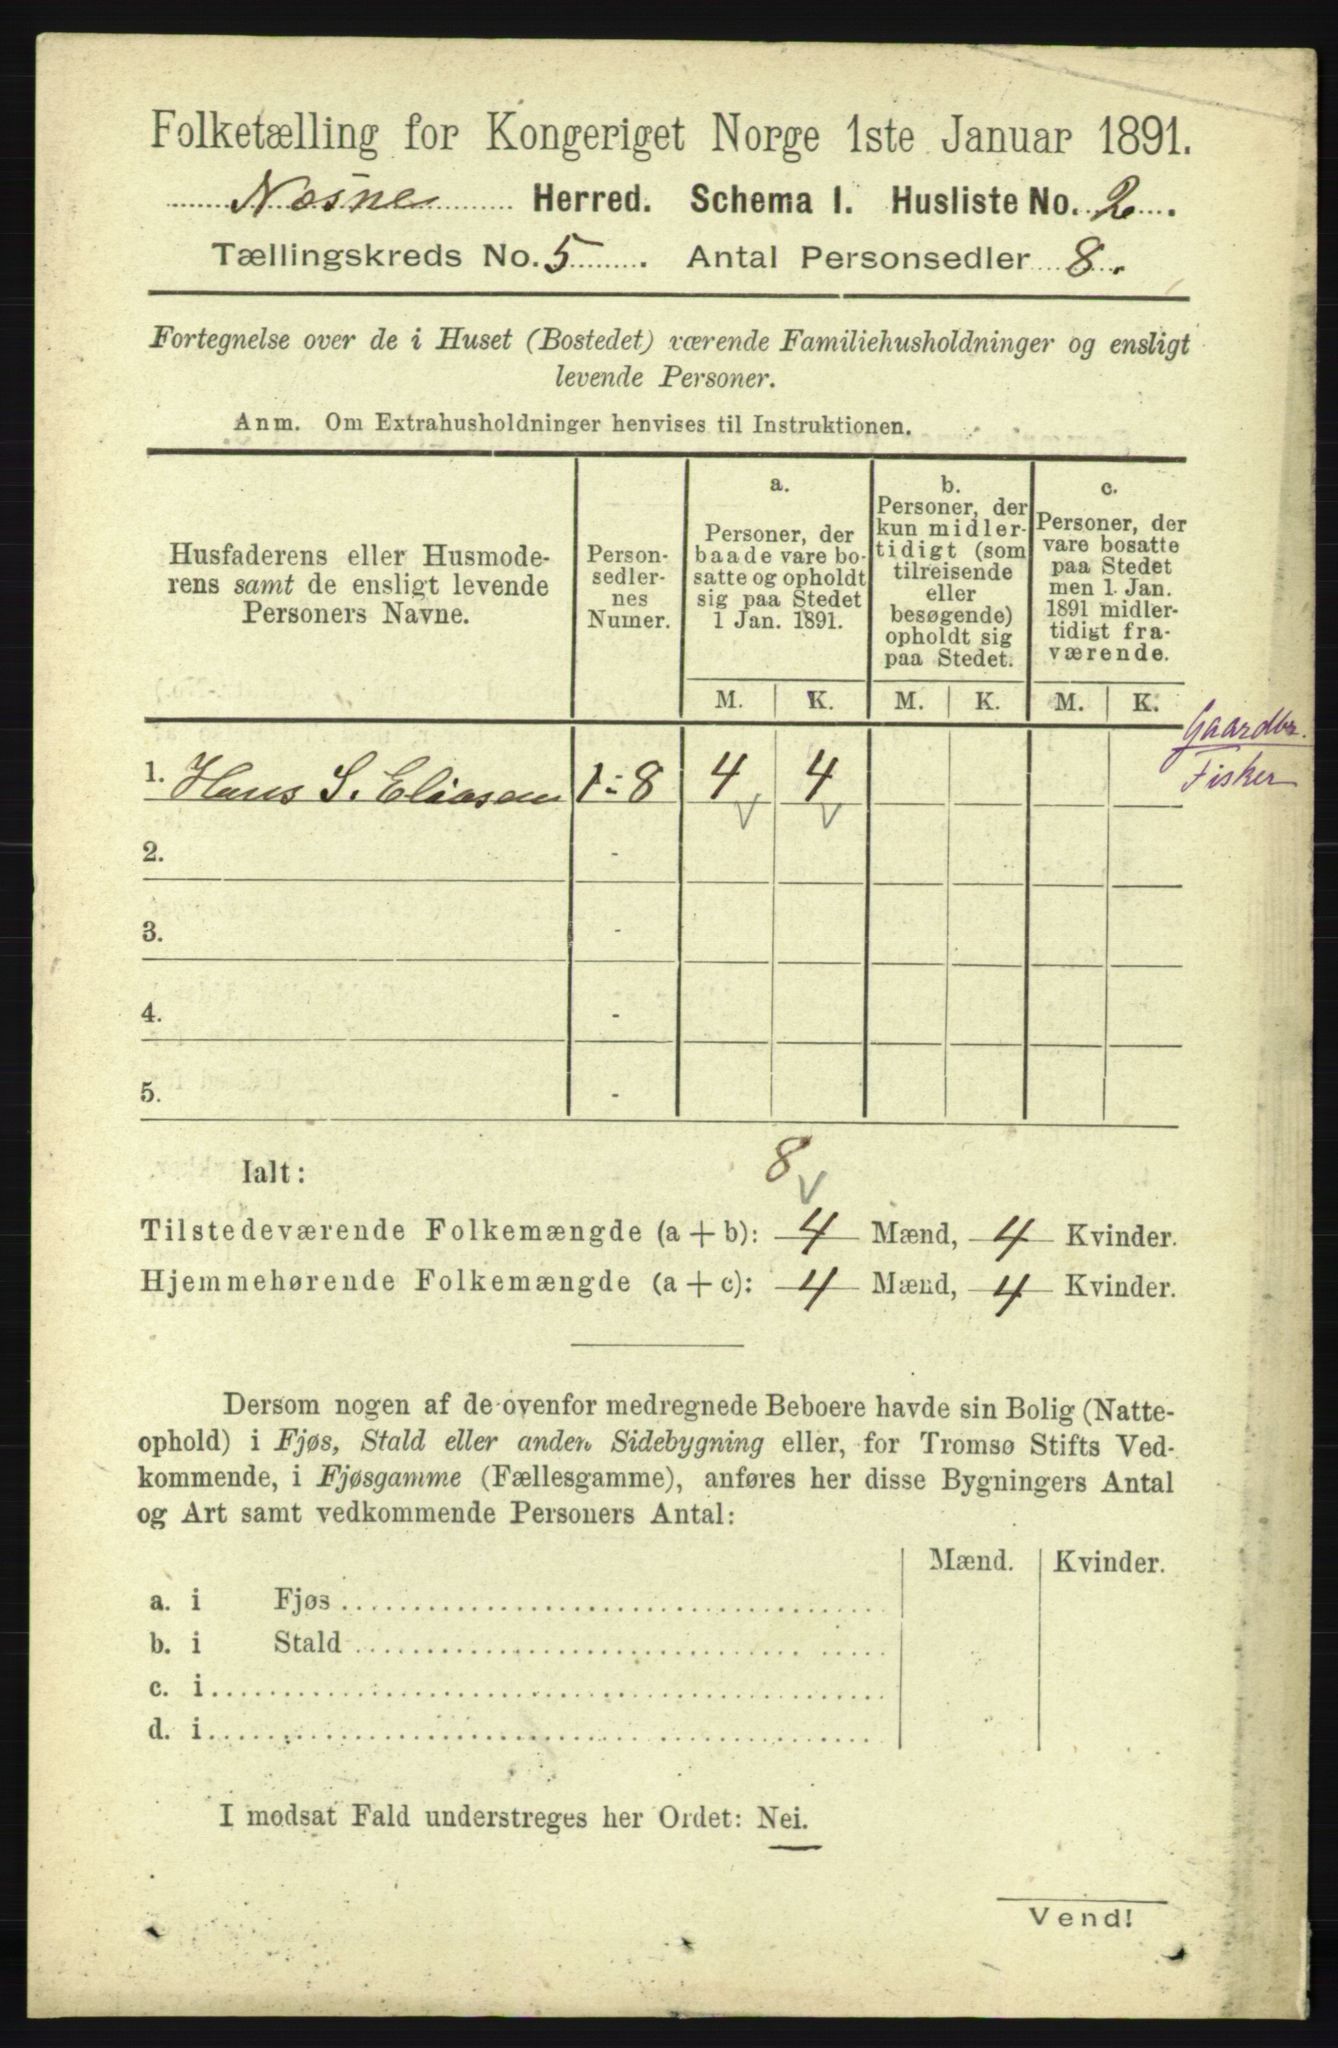 Folketælling for Kongeriget Norge 1ste Januar 1891.
Næsne Herred. Schema I. Husliste No. 2.
Tællingskreds No. 5. Antal Personsedler 8.
Fortegnelse over de i Huset (Bostedet) værende Familiehusholdninger og ensligt
levende Personer.
Anm. Om Extrahusholdninger henvises til Instruktionen.
Husfaderens eller Husmode-
rens samt de ensligt levende
Personers Navne.
Person-
sedler-
nes
Numer.
a.
Personer, der
baade vare bo-
satte og opholdt
sig paa Stedet
1 Jan. 1891.
b.
Personer, der
kun midler-
tidigt (som
tilreisende
eller
besøgende)
opholdt sig
paa Stedet.
c.
Personer, der
vare bosatte
paa Stedet
men 1. Jan.
1891 midler-
tidigt fra-
værende.
M. K. M. K. M. K.
Gaardbr.
Fisker
1. Hans S. Eliasen 1-8 4 4
2. -
3. -
4. -
5. -
8
Ialt:
Tilstedeværende Folkemængde (a + b): 4 Mænd, 4 Kvinder.
Hjemmehørende Folkemængde (a + c): 4 Mænd, 4 Kvinder.
Dersom nogen af de ovenfor medregnede Beboere havde sin Bolig (Natte-
ophold) i Fjøs, Stald eller anden Sidebygning eller, for Tromsø Stifts Ved-
kommende, i Fjøsgamme (Fællesgamme), anføres her disse Bygningers Antal
og Art samt vedkommende Personers Antal:
Mænd. Kvinder.
a. i Fjøs
b. i Stald
c. i
d. i
I modsat Fald understreges her Ordet: Nei.
Vend!